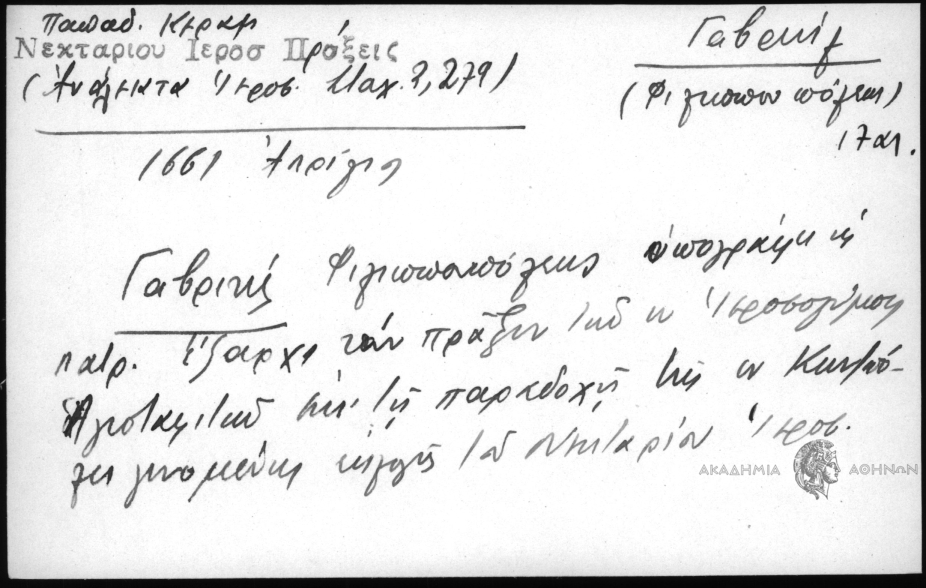 Παπαδ. Κεραμ
Νεκταριου Ιεροσ Πράξεις
(Ἀνάλεκτα Ἱεροσ. Σταχ. 2, 279)
Γαβριήλ
(Φιλιππουπόλεως)
17 αι.
1661 Ἀπρίλιος
Γαβριὴλ Φιλιππουπόλεως ὑπογράφει ὡς
πατρ. ἔξαρχος τὴν πρᾶξιν τοῦ ἐν Ἱεροσολύμοις
Ἁγιοταφιτικοῦ ἐπὶ τῇ παραδοχῇ τῆς ἐν Κωνπό-
λει γενομένης ἐκλογῆς τοῦ Νεκταρίου Ἱεροσ.
ΑΚΑΔΗΜΙΑ ΑΘΗΝΩΝ